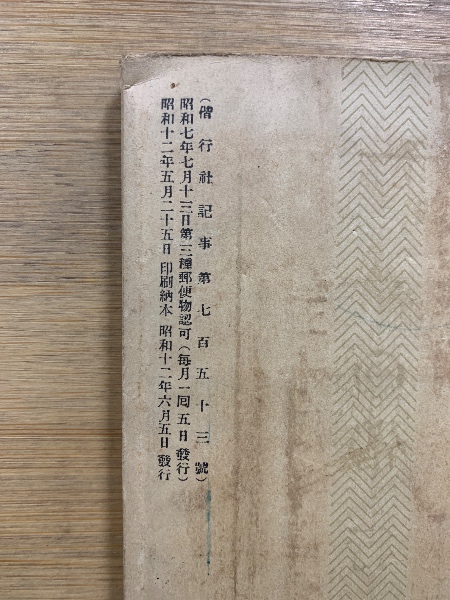 (偕行社記事第七百五十三號)
昭和七年七月十三日第三種郵便物認可(每月一囘五日發行)
昭和十二年五月二十五日印刷納本 昭和十二年六月五日發行